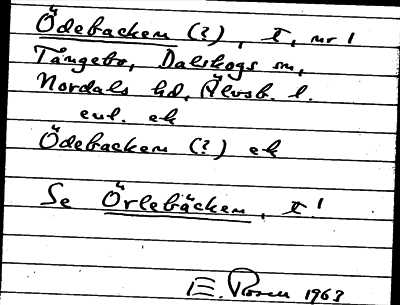 Ödebacken (?), t, nr 1
Tångebo, Dalskogs sn,
Nordals hd, Älvsb. l.
enl. ek
Ödebacken (?) ek
Se Örlebäcken, t!
E. Rosen 1963